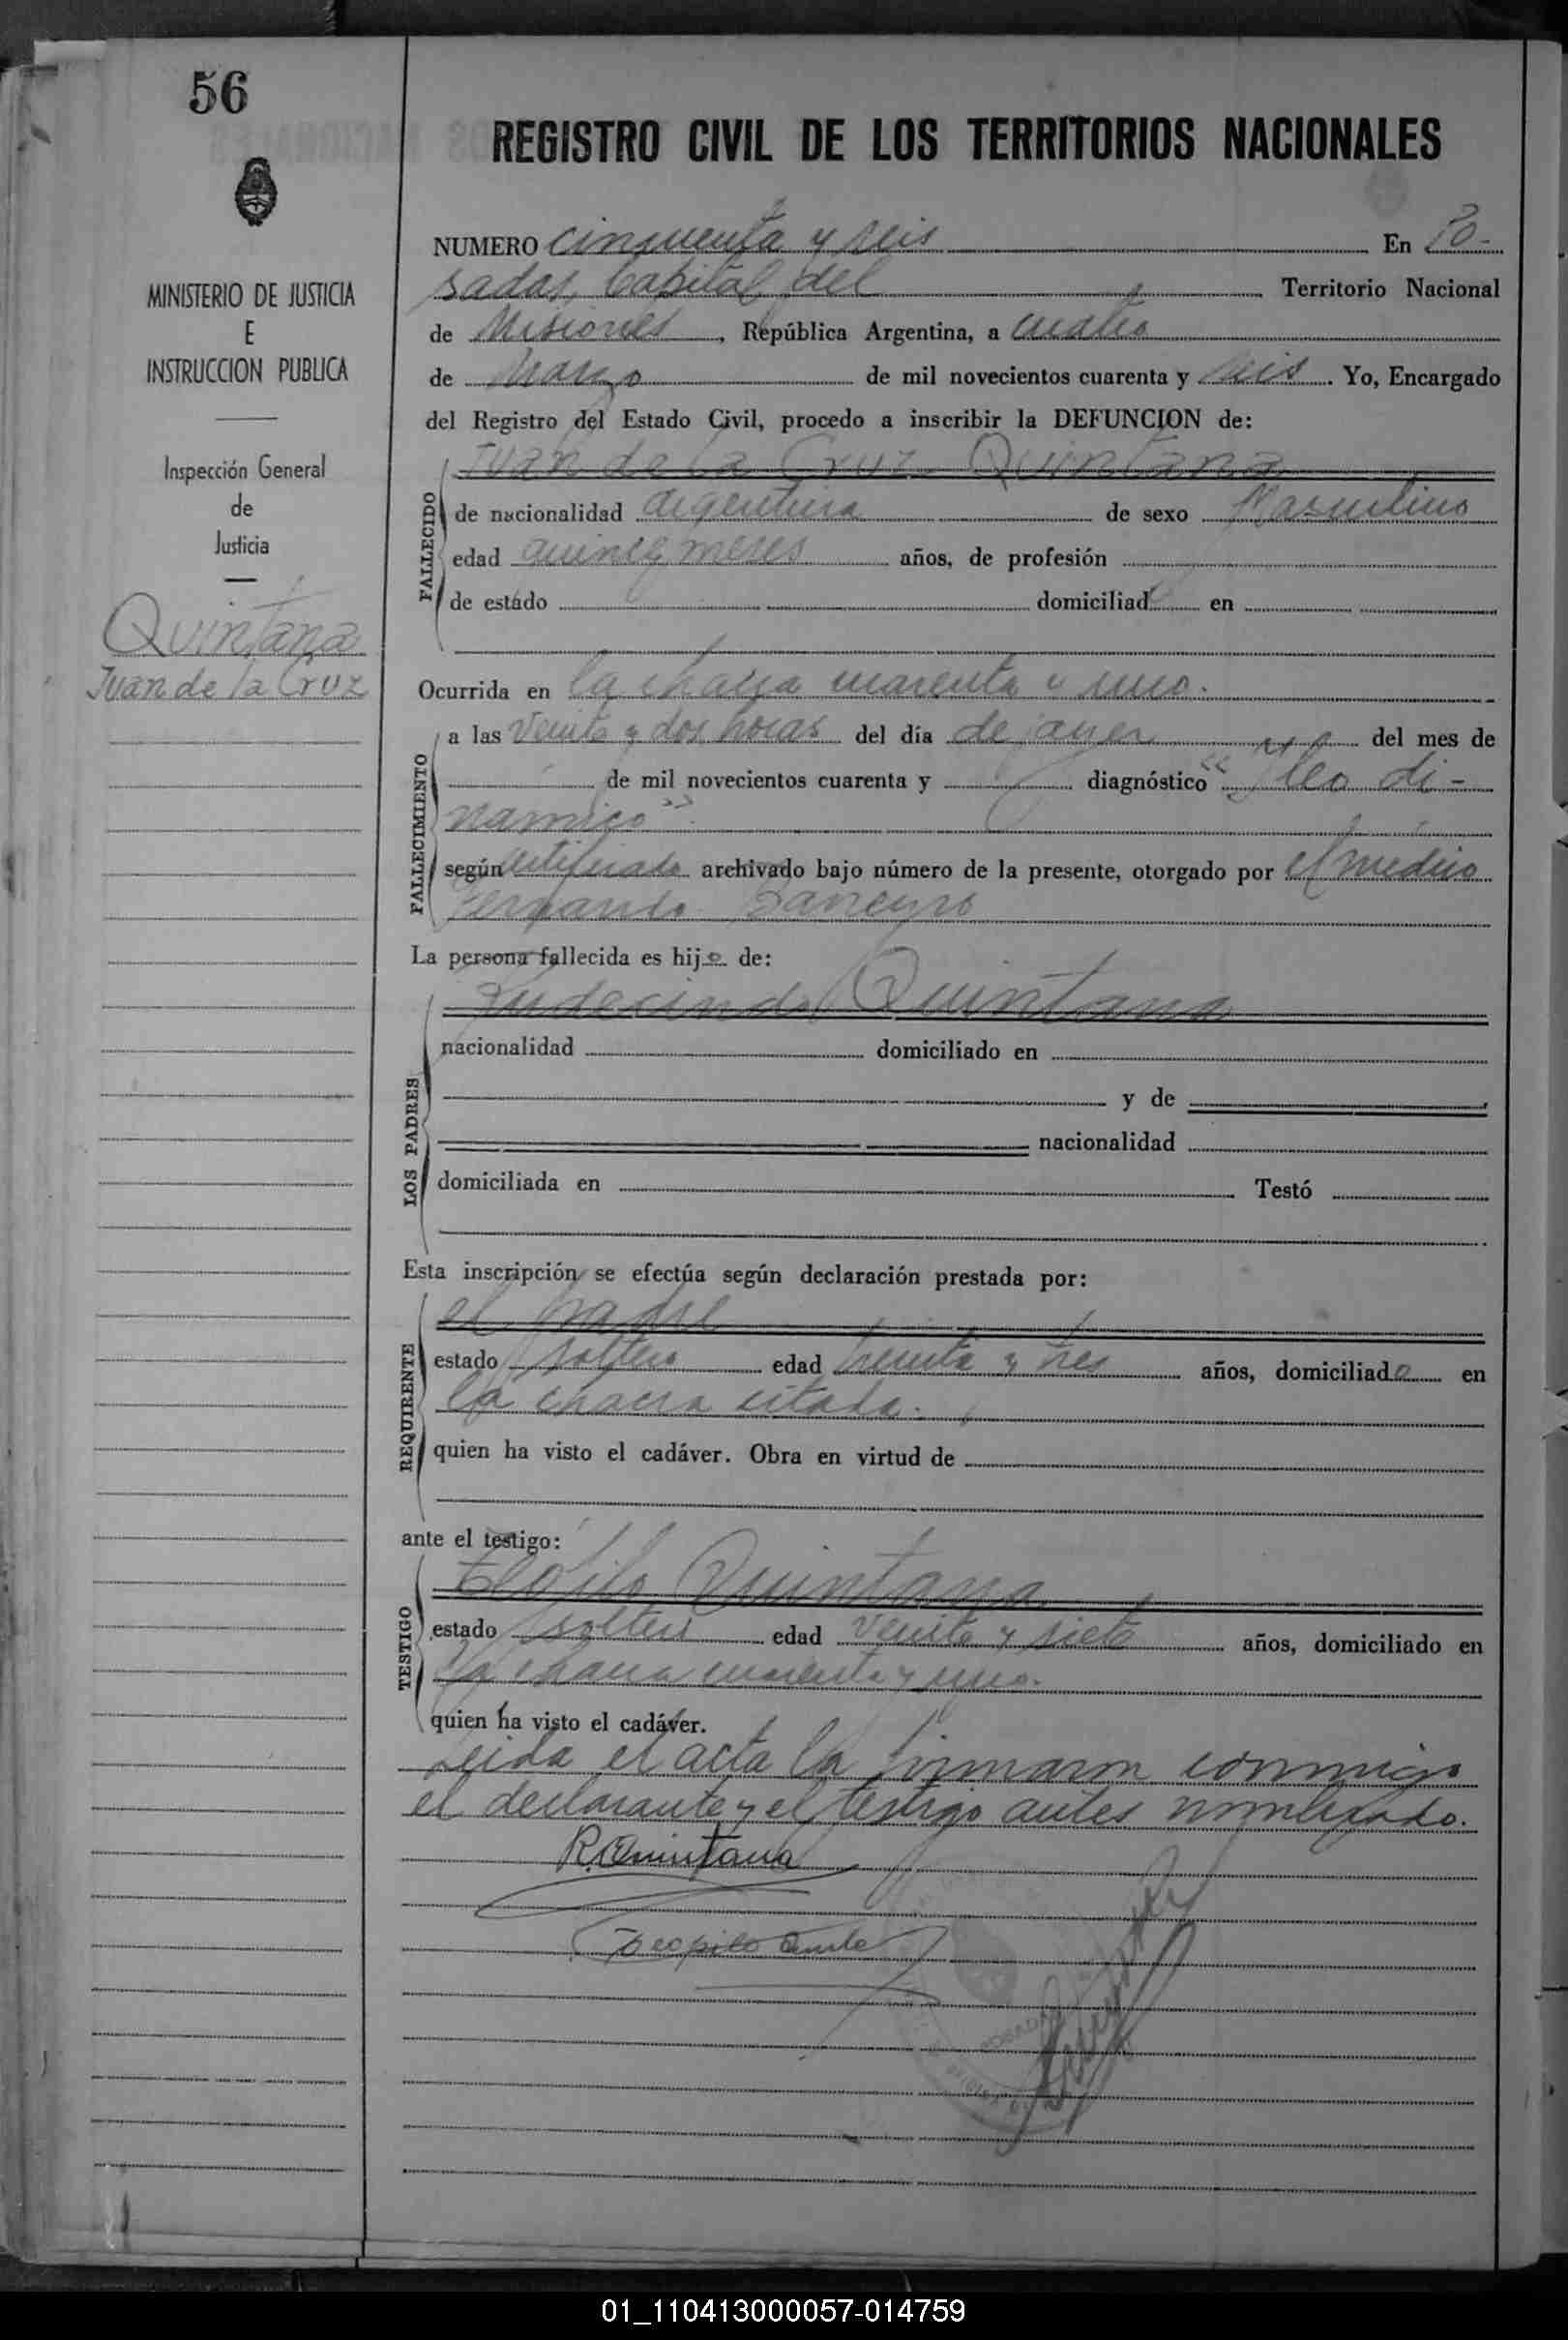 56
REGISTRO CIVIL DE LOS TERRITORIOS NACIONALES
MINISTERIO DE JUSTICIA
E
INSTRUCCION PUBLICA
Inspección General
de
Justicia
Quintana
Juan de la Cruz
NUMERO cincuenta y seis En Po-
sadas, Capital del Territorio Nacional
de Misiones, República Argentina, a cuatro
de Marzo de mil novecientos cuarenta y seis. Yo, Encargado
del Registro del Estado Civil, procedo a inscribir la DEFUNCION de:
Juan de la Cruz Quintana
FALLECIDO
de nacionalidad argentina de sexo Masculino
edad quince meses años, de profesión
de estado domiciliad en
Ocurrida en la chacra cuarenta y uno.
FALLECIMIENTO
a las veinte y dos horas del día de ayer del mes de
de mil novecientos cuarenta y diagnóstico "Ileo di-
namico".
según certificado archivado bajo número de la presente, otorgado por el médico
Fernando
La persona fallecida es hijo de:
LOS PADRES
Rudecindo Quintana
nacionalidad domiciliado en
y de
nacionalidad
domiciliada en Testó
Esta inscripción se efectúa según declaración prestada por:
REQUIRENTE
el padre
estado soltero edad treinta y tres años, domiciliado en
la chacra citada.
quien ha visto el cadáver. Obra en virtud de
ante el testigo:
TESTIGO
Teofilo Quintana
estado soltero edad veinte y siete años, domiciliado en
la chacra cuarenta y uno.
quien ha visto el cadáver.
Leida el acta la firmaron conmigo
el declarante y el testigo antes nombrado.
R. Quintana
Teofilo
POSADAS
01_110413000057-014759